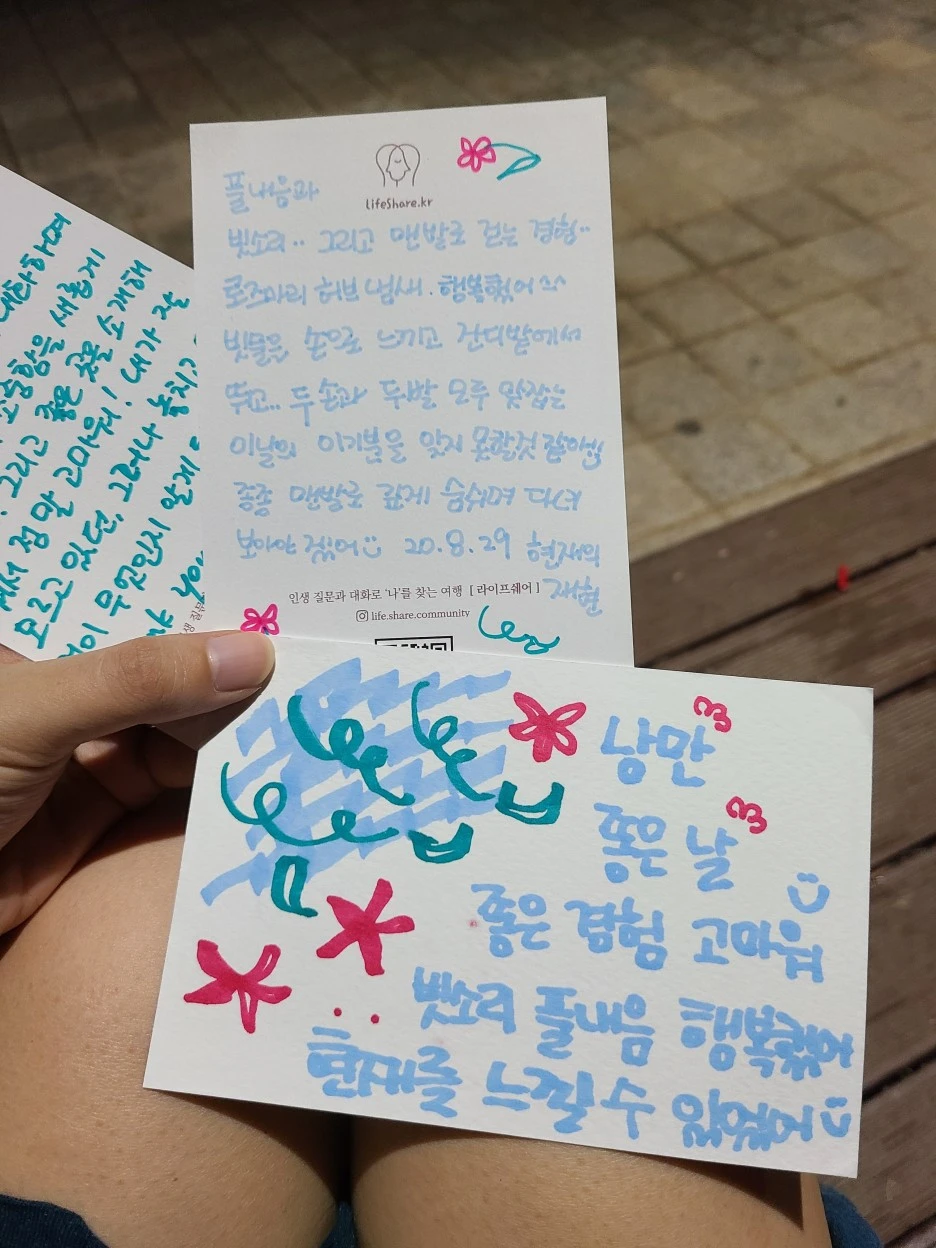 풀내음과
lifeShare.kr
빗소리.. 그리고 맨발로 걷는 경험..
로즈마리 허브 냄새. 행복했어^^
빗물을 손으로 느끼고 잔디밭에서
뛰고.. 두 손과 두발 모두 맞잡는
이날의 이기분을 잊지 못할것 같아!!
종종 맨발로 쉽게 숨쉬며 다녀
보아야 겠어 20.8.29 현재의
재현
인생 질문과 대화로 '나'를 찾는 여행 [ 라이프쉐어 ]
life.share.community
대화하며
소중함을 새롭게
그리고 좋은 곳을 소개해
정말 고마워! 내가 잘
모르고 있던, 그러나 놓치
무엇인지 알게
낭만
좋은 날
좋은 경험 고마워
빗소리 풀내음 행복했어
현재를 느낄 수 있었어